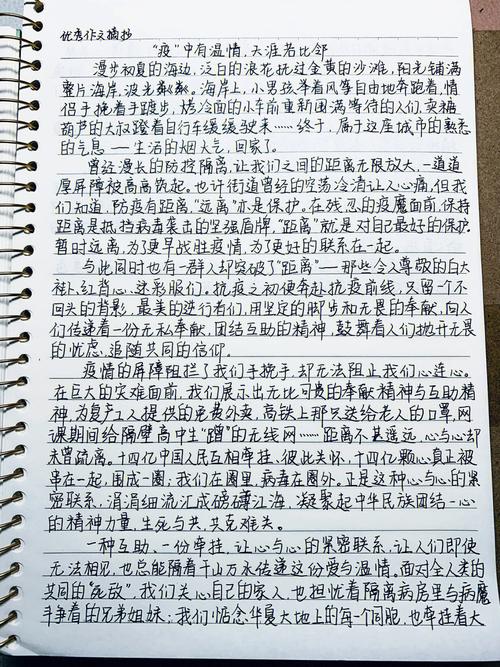 优秀作文摘抄
“疫”中有温情,天涯若比邻
漫步初夏的海边,泛白的浪花抚过金黄的沙滩,阳光铺满
整片海岸,波光粼粼。海岸上,小男孩举着风筝自由地奔跑着,情
侣手挽着手踱步,烤冷面的小车前重新围满等待的人们,卖糖
葫芦的大叔蹬着自行车缓缓驶来……终于,属于这座城市的熟悉
的气息——生活的烟火气,回家了。
曾经漫长的防控隔离,让我们之间的距离无限放大,一道道
厚屏障被高高筑起。也许街道曾经的空荡冷清让人心痛,但我
们知道,防疫有距离,“远离”亦是保护。在残忍的疫魔面前,保持
距离是抵挡病毒袭击的坚强盾牌,“距离”就是对自己最好的保护。
暂时远离,为了更早战胜疫情,为了更好的联系在一起。
与此同时也有一群人却突破了“距离”——那些令人尊敬的白大
褂、红背心、迷彩服们。抗疫之初便奔赴抗疫前线,只留一个不
回头的背影,最美的逆行者们,用坚定的脚步和无畏的奉献,向人
们传递着一份无私奉献,团结互助的精神,鼓舞着人们抛开无畏
的忧虑,追随共同的信仰。
疫情的屏障阻拦了我们手挽手,却无法阻止我们心连心。
在巨大的灾难面前,我们展示出无比可贵的奉献精神与互助精
神,为复产工人提供的免费外卖,高铁上那只送给老人的口罩,网
课期间给隔壁高中生“蹭”的无线网……距离不甚遥远,心与心却
未曾疏离。十四亿中国人民互相牵挂、彼此关怀,十四亿颗心真正被
串在一起,围成一圈;我们在圈里,病毒在圈外。正是这种心与心的紧
密联系,涓涓细流汇成磅礴江海,凝聚起中华民族团结一心
的精神力量,生死与共,共克难关。
一种互助、一份牵挂,让心与心的紧密联系,让人们即使
无法相见,也总能隔着千山万水传递这份爱与温情。面对全人类的
共同的“死敌”,我们关心自己的家人,也担忧着隔离病房里与病魔
斗争着的兄弟姐妹;我们惦念华夏大地上的每一个同胞,也牵挂着大